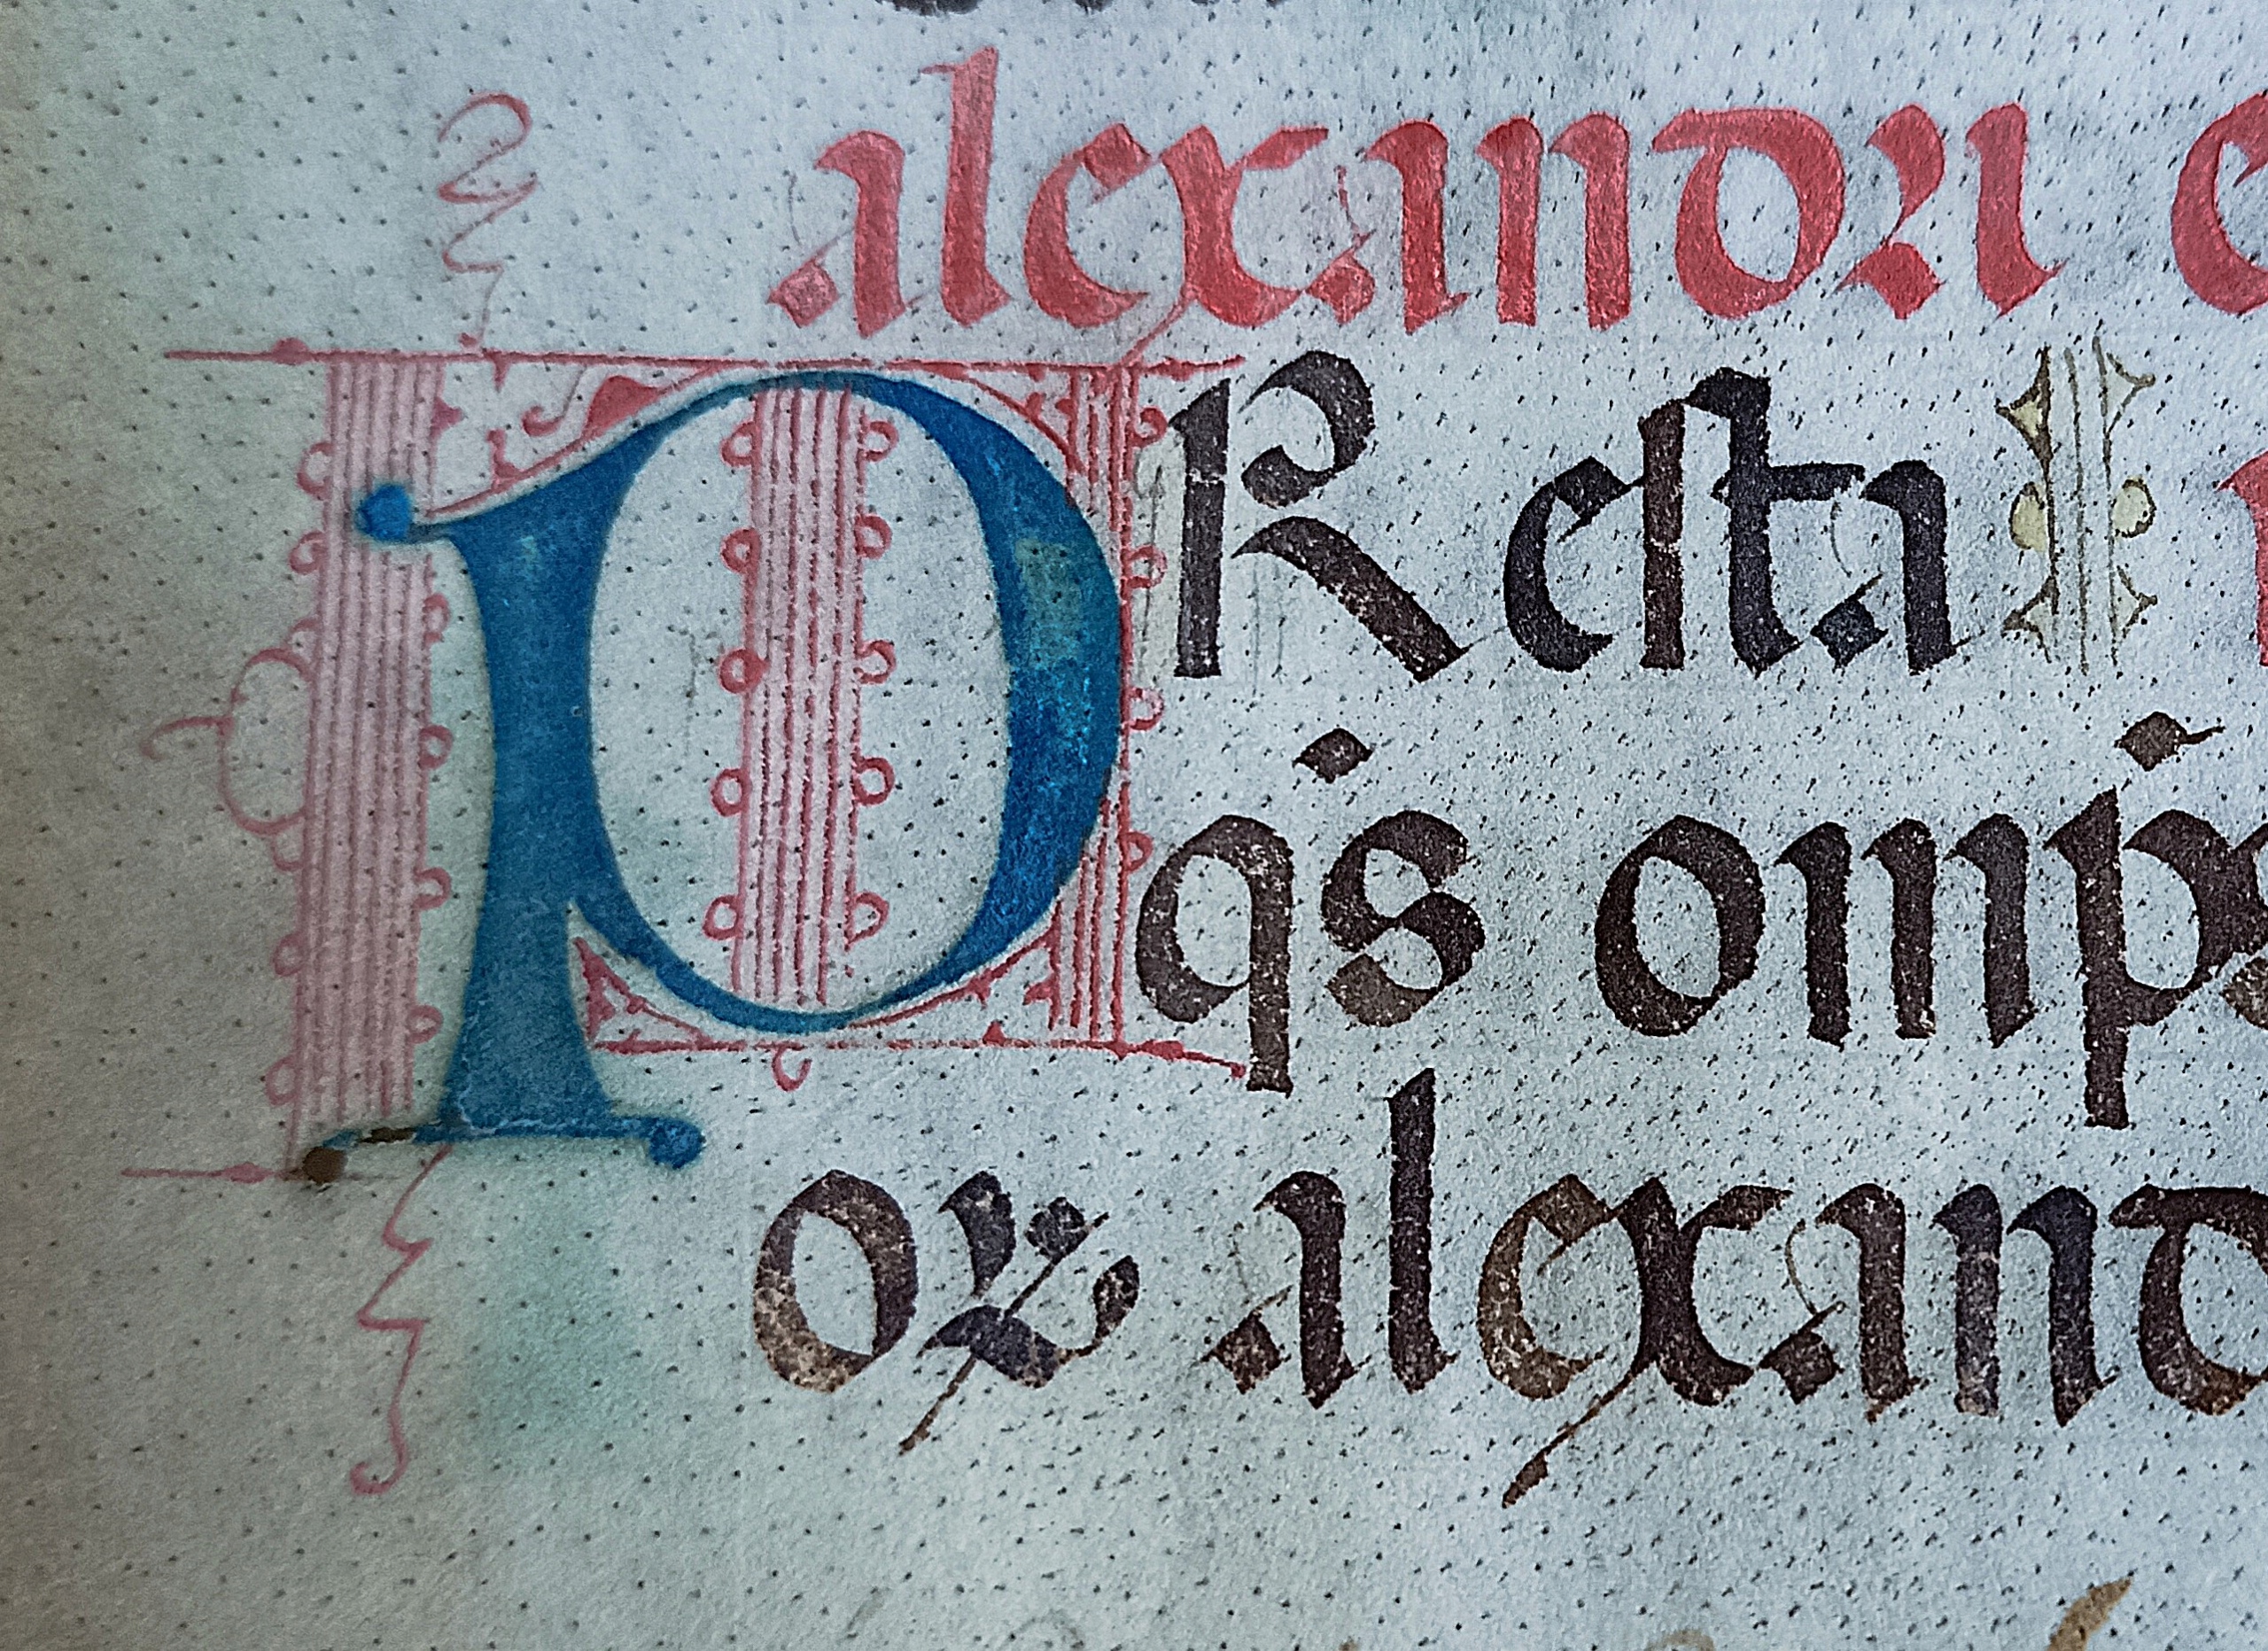 alexandri e
PReſta
qṡ omṗs
oꝝ alexand